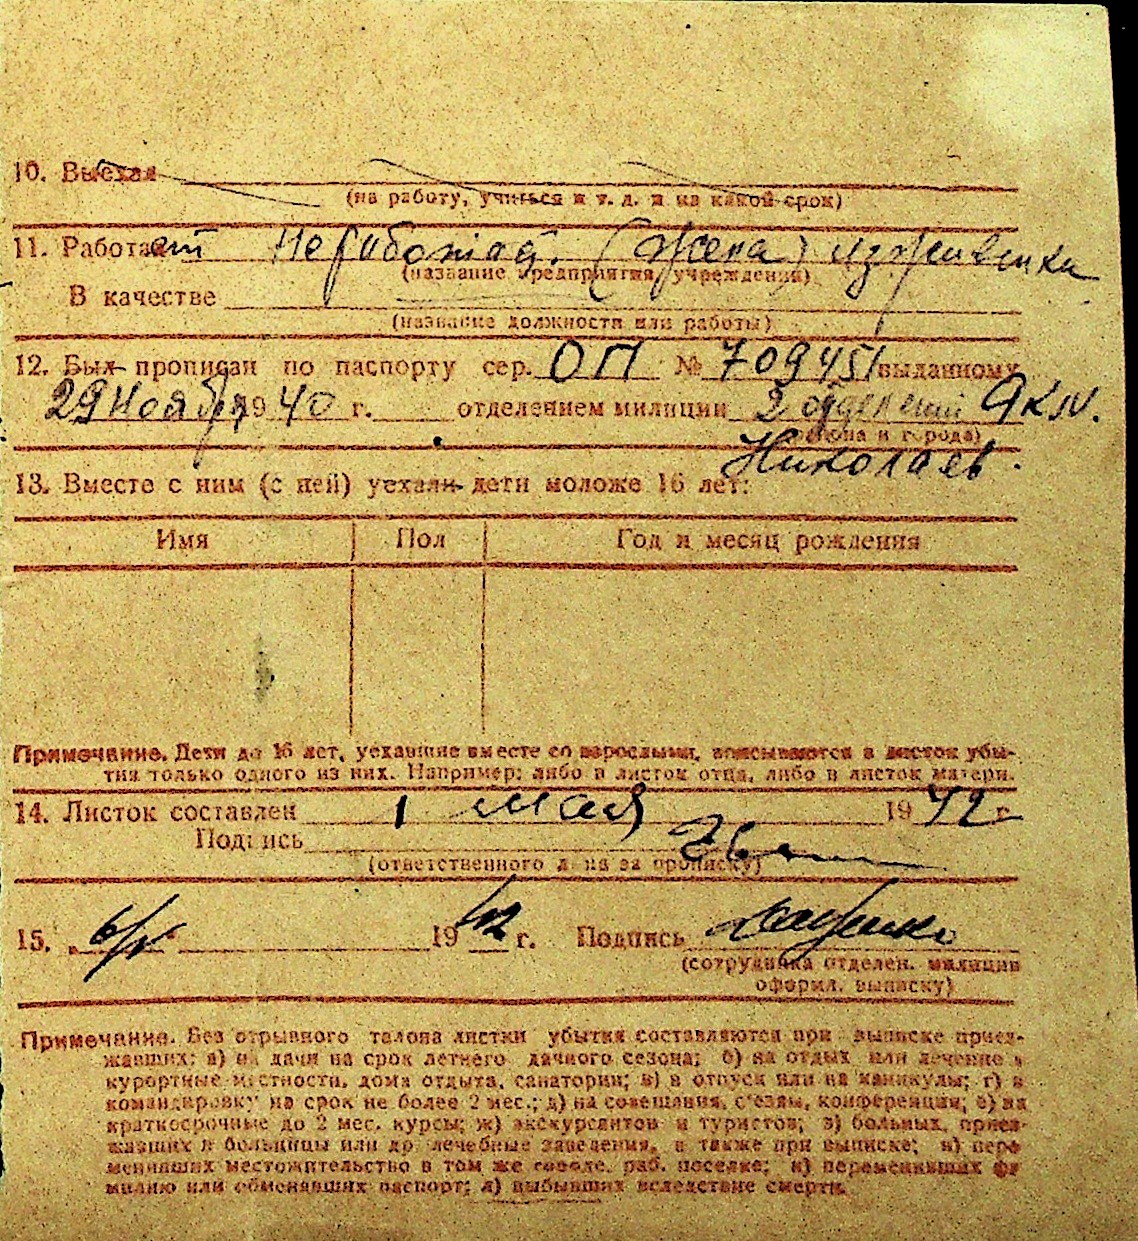 10. Выехал
(на работу, учиться и т. д. и на какой срок)
11. Работает Не работает. (Жена) иждивенка
(название предприятия, учреждения)
В качестве
(название должности или работы)
12. Был прописан по паспорту сер. ОП № 709451 выданному
29 Ноября 1940 г. отделением милиции 2 отделений
(района и города)
Николаев.
13. Вместе с ним (с ней) уехали дети моложе 16 лет:
Имя Пол Год и месяц рождения
Примечание. Дети до 16 лет, уехавшие вместе со взрослыми, вписываются в листок убы-
тия только одного из них. Например: либо в листок отца, либо в листок матери.
14. Листок составлен 1 мая 1942 г.
Подпись
(ответственного л на за прописку)
15. „6/V“ 1942 г. Подпись
(сотрудника отделен. милиции
оформл. выписку)
Примечание. Без отрывного талона листки убытия составляются при выписке приез-
жавших: а) на дачи на срок летнего дачного сезона; б) на отдых или лечение в
курортные местности, дома отдыха, санатории; в) в отпуск или на каникулы; г) в
командировку на срок не более 2 мес.; д) на совещания, съезды, конференции; е) на
краткосрочные до 2 мес. курсы; ж) экскурсантов и туристов; з) больных, приез-
жавших в больницы или др лечебные заведения, а также при выписке; и) пере
менивших местожительство в том же городе, раб. поселке; к) переменивших фа
милию или обменявших паспорт; л) выбывших вследствие смерти.